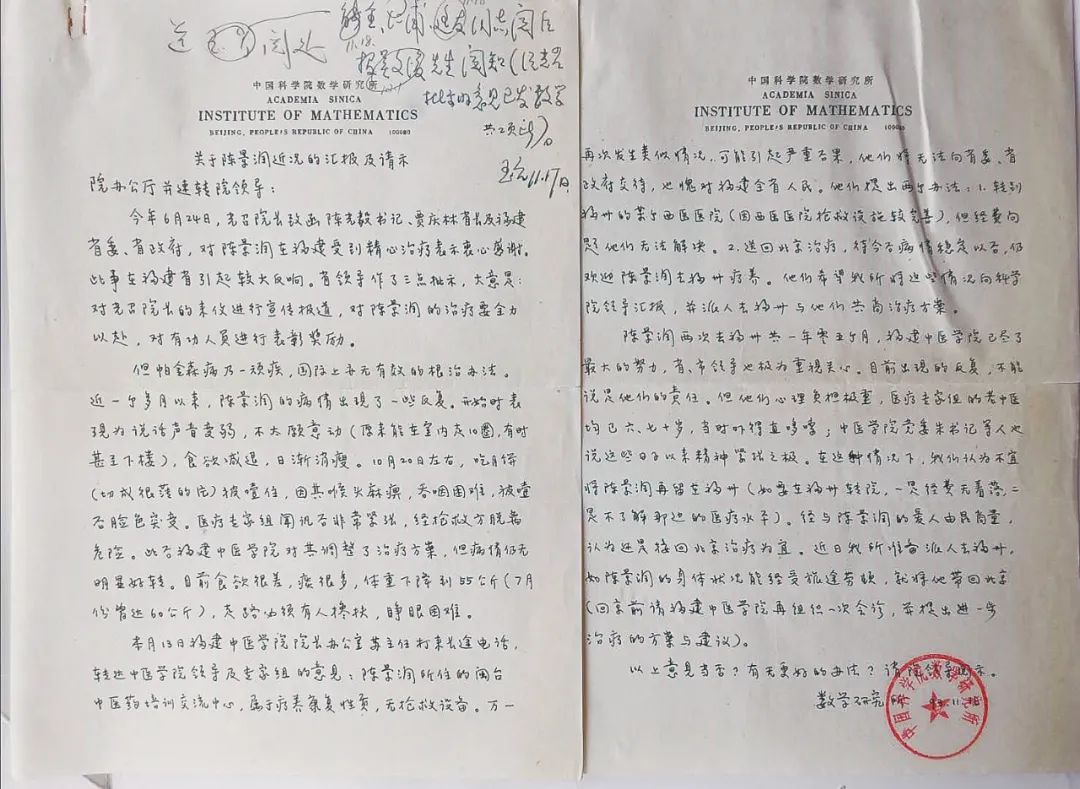 送 阅处
同志阅后
11.18.
报 先生阅知(
批示的意见已发数学
共2页
11.17日
中国科学院数学研究所
ACADEMIA SINICA
INSTITUTE OF MATHEMATICS
BEIJING, PEOPLE'S REPUBLIC OF CHINA 100080
关于陈景润近况的汇报及请示
院办公厅并速转院领导:
今年6月24日,光召院长致函陈光毅书记、贾庆林省长及福建
省委、省政府,对陈景润在福建受到精心治疗表示衷心感谢。
此事在福建省引起较大反响。省领导作了三点批示,大意是:
对光召院长的来信进行宣传报道,对陈景润的治疗要全力
以赴,对有功人员进行表彰奖励。
但帕金森病乃一顽疾,国际上亦无有效的根治办法。
近一个多月以来,陈景润的病情出现了一些反复。开始时表
现为说话声音变弱,不太愿意动(原来能在室内走10圈,有时
甚至下楼),食欲减退,日渐消瘦。10月20日左右,吃月饼
(切成很薄的片)被噎住,因其喉头麻痹,吞咽困难,被噎
后脸色突变。医疗专家组闻讯后非常紧张,经抢救方脱离
危险。此后福建中医学院对其调整了治疗方案,但病情仍无
明显好转。目前食欲很差,痰很多,体重下降到55公斤(7月
份曾达60公斤),走路必须有人搀扶,睁眼困难。
本月13日福建中医学院院长办公室苏主任打来长途电话,
转达中医学院领导及专家组的意见:陈景润所住的闽台
中医药培训交流中心,属于疗养康复性质,无抢救设备。万一
中国科学院数学研究所
ACADEMIA SINICA
INSTITUTE OF MATHEMATICS
BEIJING, PEOPLE'S REPUBLIC OF CHINA 100080
再次发生类似情况,可能引起严重后果,他们将无法向省委、省
政府交待,也愧对福建全省人民。他们提出两个办法:1.转到
福州的某个西医医院(因西医医院抢救设施较完善),但经费问
题他们无法解决。2.送回北京治疗,待今后病情稳定以后,仍
欢迎陈景润去福州疗养。他们希望我所将这些情况向科学
院领导汇报,并派人去福州与他们共商治疗方案。
陈景润两次去福州共一年零五个月,福建中医学院已尽了
最大的努力,省、市领导也极为重视关心。目前出现的反复,不能
说是他们的责任。但他们心理负担极重,医疗专家组的老中医
均已六、七十岁,当时吓得直哆嗦;中医学院党委朱书记等人也
说这些日子以来精神紧张之极。在这种情况下,我们认为不宜
将陈景润再留在福州(如要在福州转院,一是经费无着落,二
是不了解那边的医疗水平)。经与陈景润的爱人由昆商量,
认为还是接回北京治疗为宜。近日我所准备派人去福州,
如陈景润的身体状况能经受旅途劳顿,就将他带回北京
(回京前请福建中医学院再组织一次会诊,并提出进一步
治疗的方案与建议)。
以上意见当否?有无更好的办法?请院领导批示。
数学研究所
中国科学院数学研究所